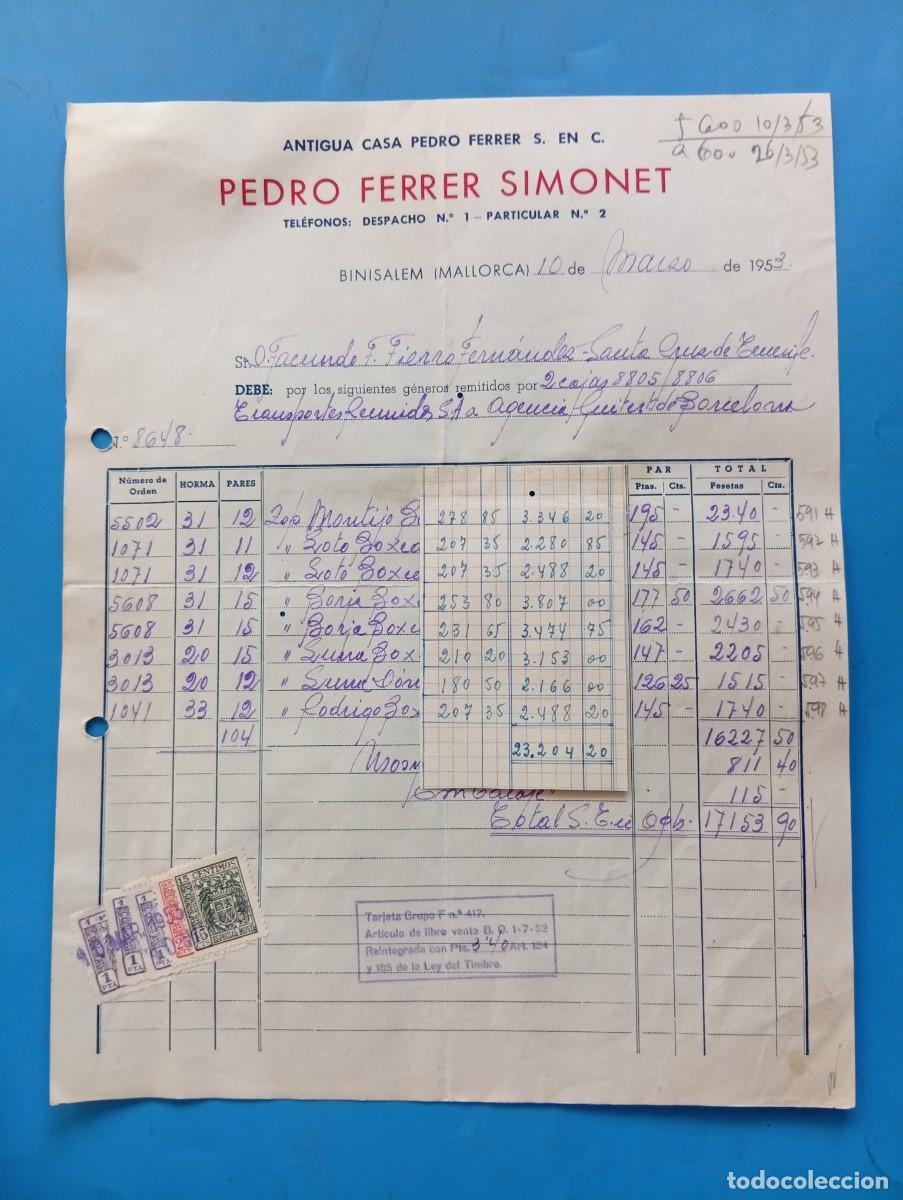 ƒ 600 10/3/53
a 600 26/3/53
ANTIGUA CASA PEDRO FERRER S. EN C.
PEDRO FERRER SIMONET
TELÉFONOS: DESPACHO N.º 1 - PARTICULAR N.º 2
BINISALEM (MALLORCA) 10 de Marzo de 1953.
Sr. D. Facundo F. Fierro Fernández - Santa Cruz de Tenerife.
DEBE: por los siguientes géneros remitidos por 2 cajas 8805/8806
Transportes Reunidos S.A a Agencia Guitert de Barcelona
N.º 8648.
Número de Orden HORMA PARES PAR Ptas. Cts. TOTAL Pesetas Cts.
5502 31 12 Zap Montijo 278 85 3.346 20 195 - 2340 - 591 A
1071 31 11 " Soto Boxca 207 35 2.280 85 145 - 1595 - 592 A
1071 31 12 " Soto Boxc 207 35 2.488 20 145 - 1740 - 593 A
5608 31 15 " Borja Box 253 80 3.807 00 177 50 2662 50 594 A
5608 31 15 " Borja Boxc 231 65 3.474 75 162 - 2430 - 595 A
3013 20 15 " Box 210 20 3.153 00 147 - 2205 - 596 A
3013 20 12 " 180 50 2.166 00 126 25 1515 - 597 A
1041 33 12 " Rodrigo Box 207 35 2.488 20 145 - 1740 - 598 A
104 23.204 20 16227 50
811 40
Embalaje 115 -
Total S. E. u O. ptas. 17153 90
15 CENTIMOS
15 CTS
ESPECIAL MOVIL
1 PTA
1 PTA
1 PTA
25
Tarjeta Grupo F n.º 417.
Artículo de libre venta B. O. 1-7-52
Reintegrada con Pts. 3'40 Art. 184
y 185 de la Ley del Timbre.
todocoleccion